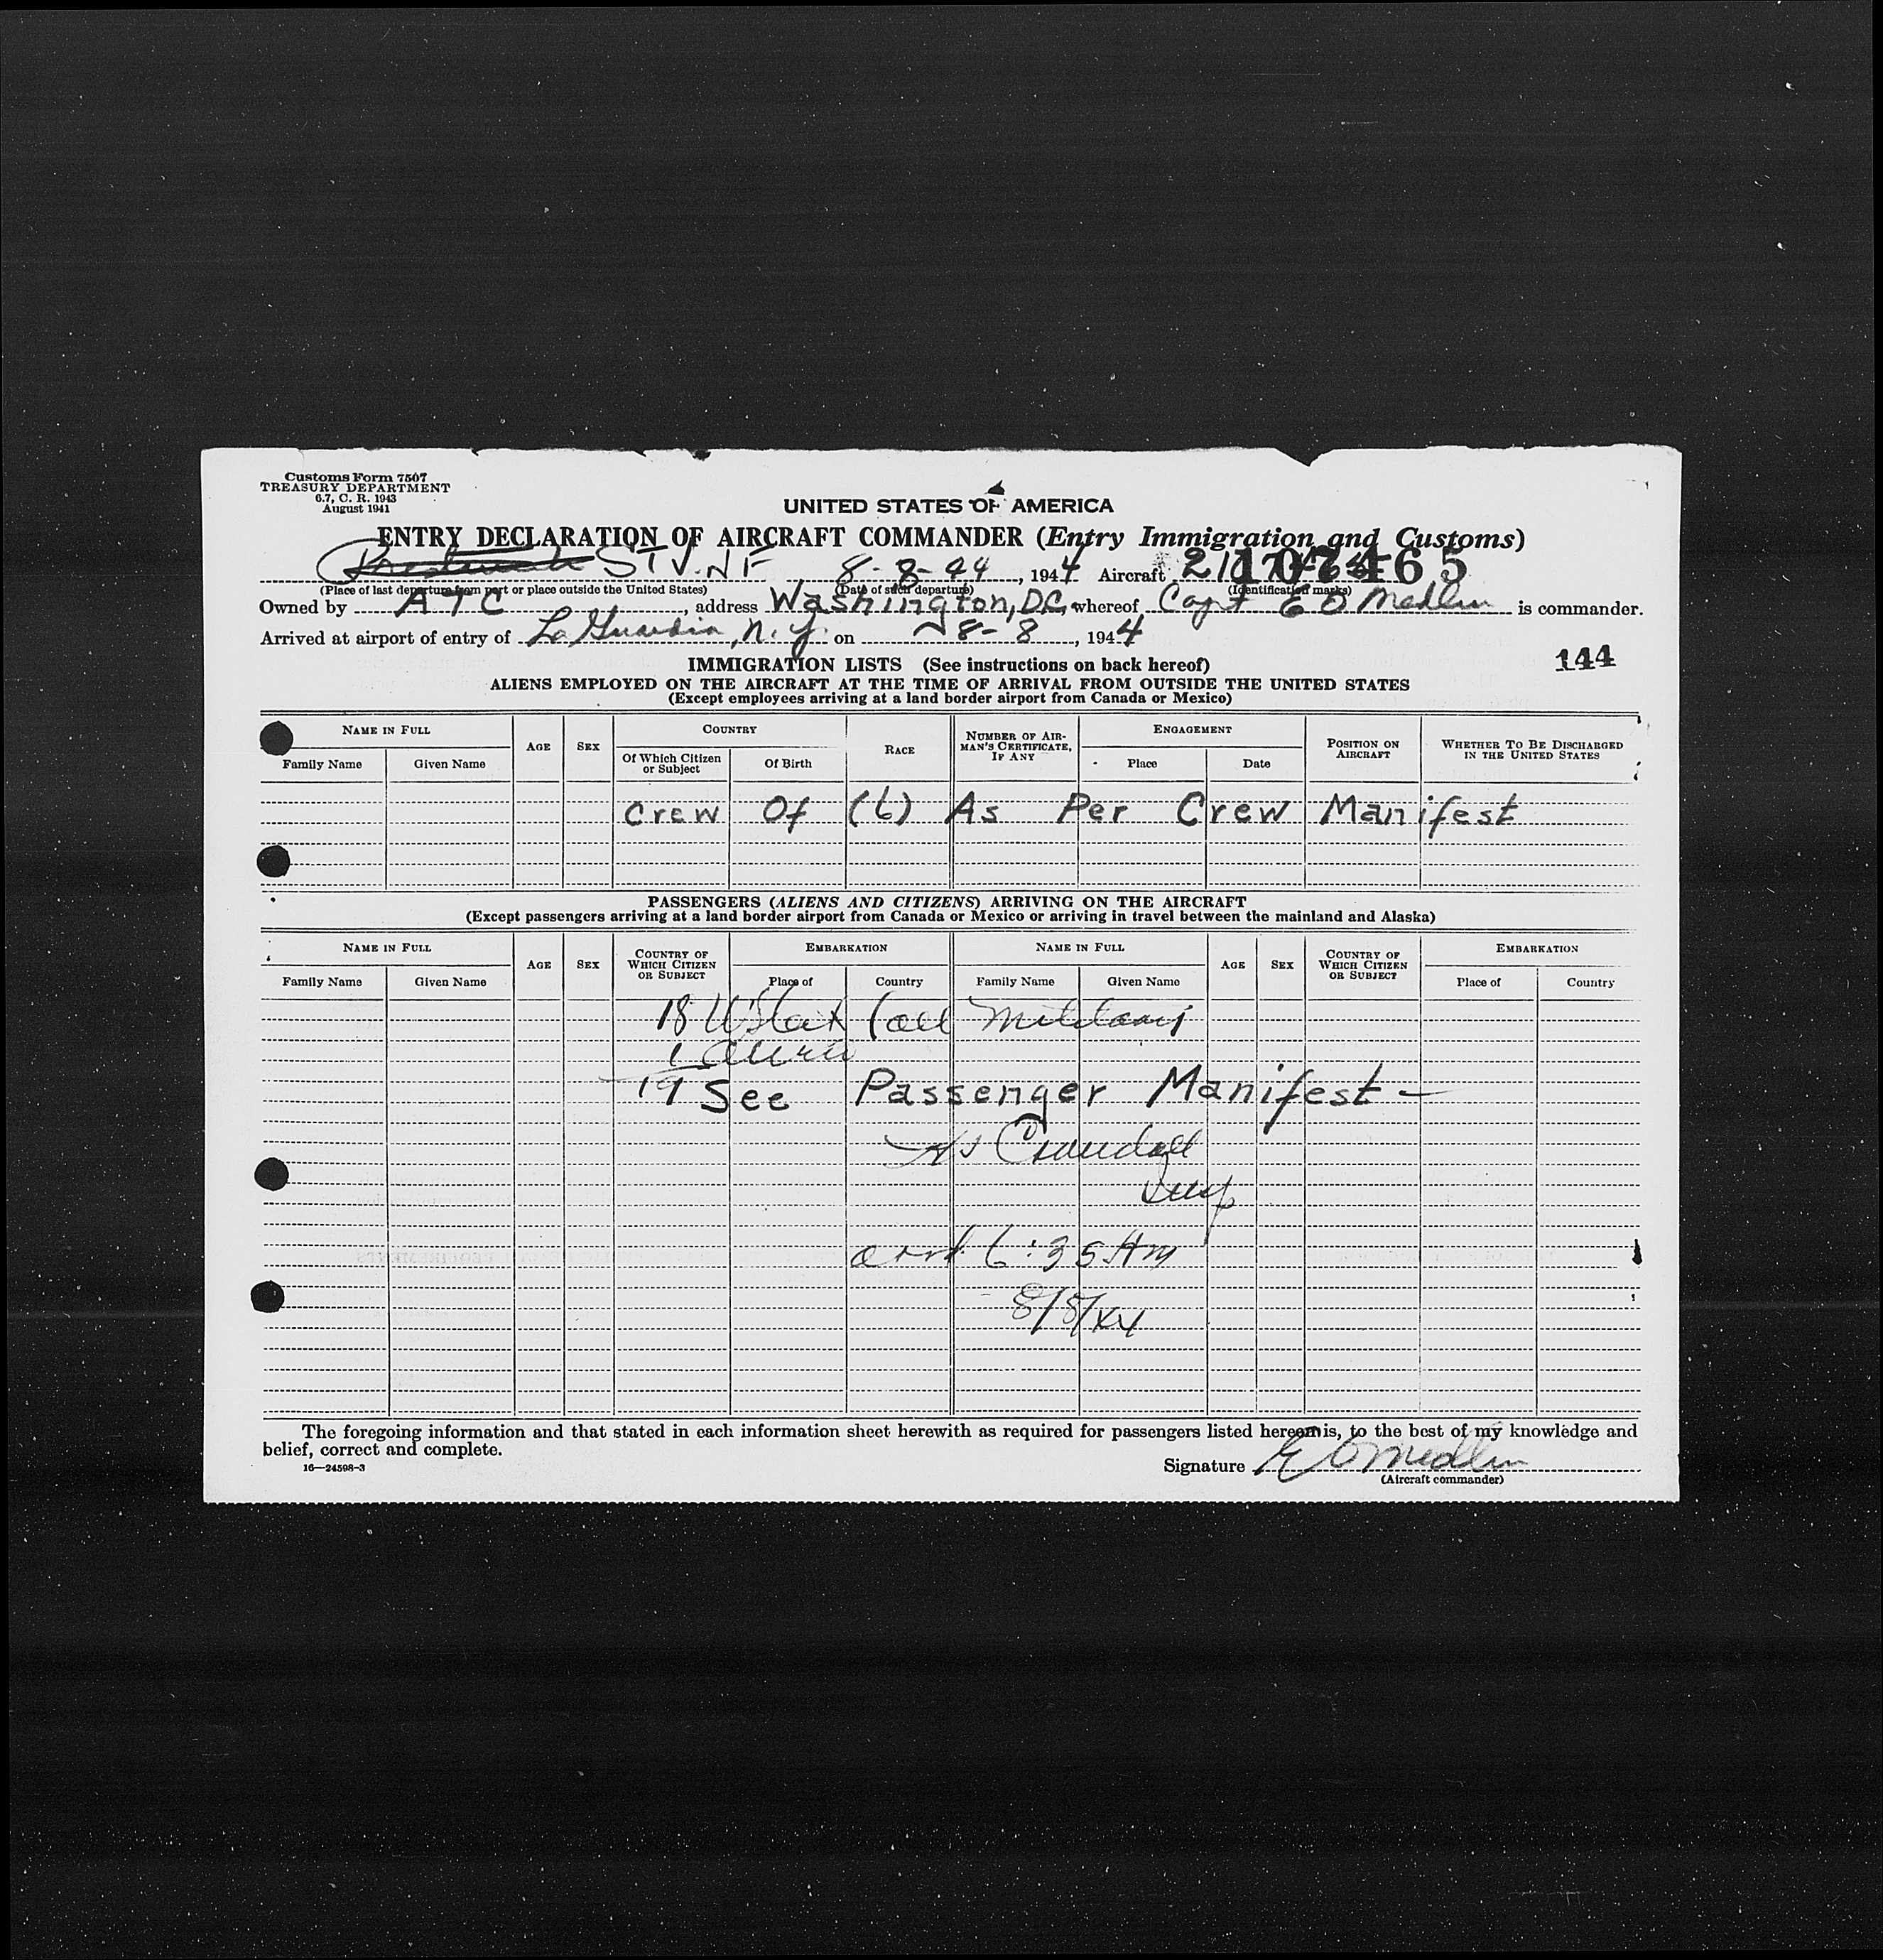 Customs Form 7507
TREASURY DEPARTMENT
6.7, C. R. 1943
August 1941
UNITED STATES OF AMERICA
ENTRY DECLARATION OF AIRCRAFT COMMANDER (Entry Immigration and Customs)
STV. NF 8-8-44, 1944 Aircraft 107465
(Place of last departure from port or place outside the United States) (Date of such departure) (Identification marks)
Owned by ATC, address Washington, D.C. whereof Capt E O Medlin is commander.
Arrived at airport of entry of La Guardia, N.Y. on 8-8, 1944
144
IMMIGRATION LISTS (See instructions on back hereof)
ALIENS EMPLOYED ON THE AIRCRAFT AT THE TIME OF ARRIVAL FROM OUTSIDE THE UNITED STATES
(Except employees arriving at a land border airport from Canada or Mexico)
NAME IN FULL AGE SEX COUNTRY RACE NUMBER OF AIRMAN'S CERTIFICATE, IF ANY ENGAGEMENT POSITION ON AIRCRAFT WHETHER TO BE DISCHARGED IN THE UNITED STATES
Family Name Given Name Of Which Citizen or Subject Of Birth Place Date
Crew Of (6) As Per Crew Manifest
PASSENGERS (ALIENS AND CITIZENS) ARRIVING ON THE AIRCRAFT
(Except passengers arriving at a land border airport from Canada or Mexico or arriving in travel between the mainland and Alaska)
NAME IN FULL AGE SEX COUNTRY OF WHICH CITIZEN OR SUBJECT EMBARKATION NAME IN FULL AGE SEX COUNTRY OF WHICH CITIZEN OR SUBJECT EMBARKATION
Family Name Given Name Place of Country Family Name Given Name Place of Country
18 (all Military
1 Alien
19 See Passenger Manifest -
Crandall
Insp
arrd 6:35 AM
8/8/44
The foregoing information and that stated in each information sheet herewith as required for passengers listed hereon is, to the best of my knowledge and
belief, correct and complete.
16—24598-3
Signature E O Medlin
(Aircraft commander)